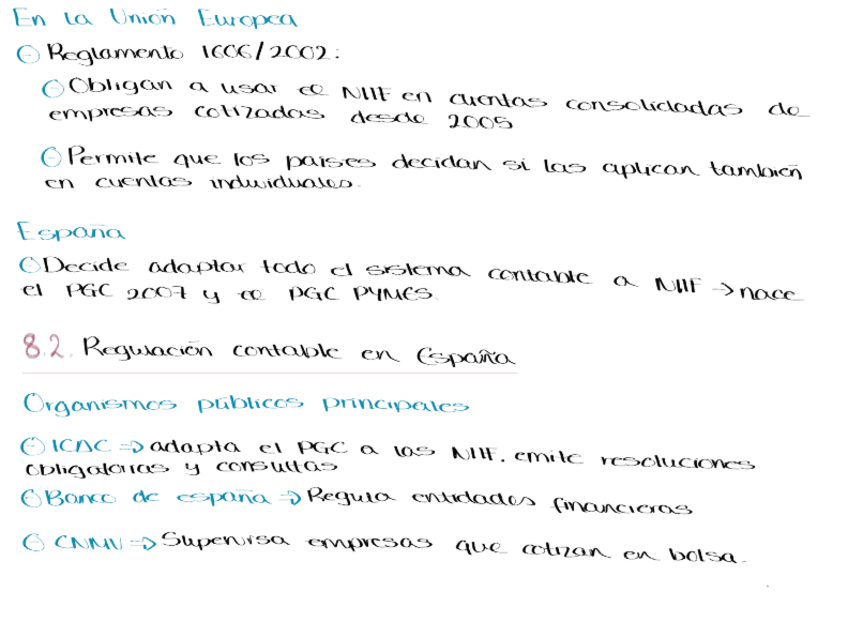 En la Unión Europea
⊖ Reglamento 1606/2002:
⊖ Obligan a usar ce NIIF en cuentas consolidadas de
empresas cotizadas desde 2005
⊖ Permite que los países decidan si las aplican también
en cuentas individuales.
España
⊖ Decide adaptar todo el sistema contable a NIIF → nace
el PGC 2007 y ce PGC PYMES
8.2. Regulación contable en España
Organismos públicos principales
⊖ ICAC ⇒ adapta el PGC a las NIIF. emite resoluciones
obligatorias y consultas
⊖ Banco de españa ⇒ Regula entidades financieras
⊖ CNMV ⇒ Supervisa empresas que cotizan en bolsa.